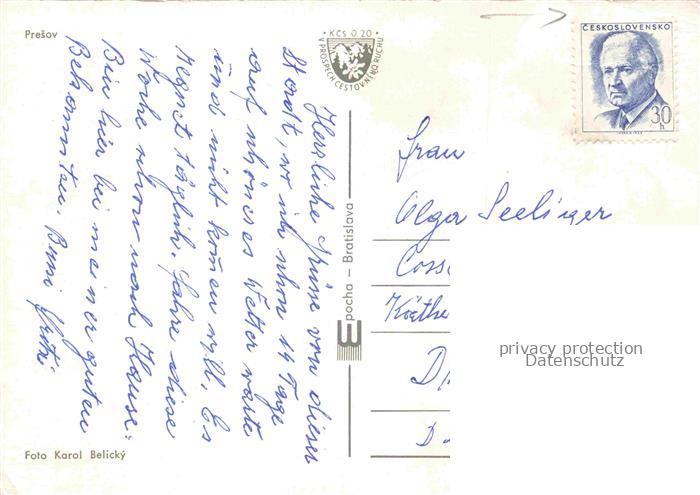 Prešov
KČS 0,20
V PROSPECH CESTOVNÉHO RUCHU
ČESKOSLOVENSKO
30
h
Herzliche Grüsse von dieser
Stardt, wo ich schon 14 Tage
auf schönes Wetter warte
und nicht komen will. Es
Regnet täglich. Fahre diese
Woche schon nach Hause.
Bin hier bei meiner guten
Bekannten. Bussi
Epocha – Bratislava
Frau
Olga Seelinger
Coss
Köthe
D
D-
privacy protection
Datenschutz
Foto Karol Belický